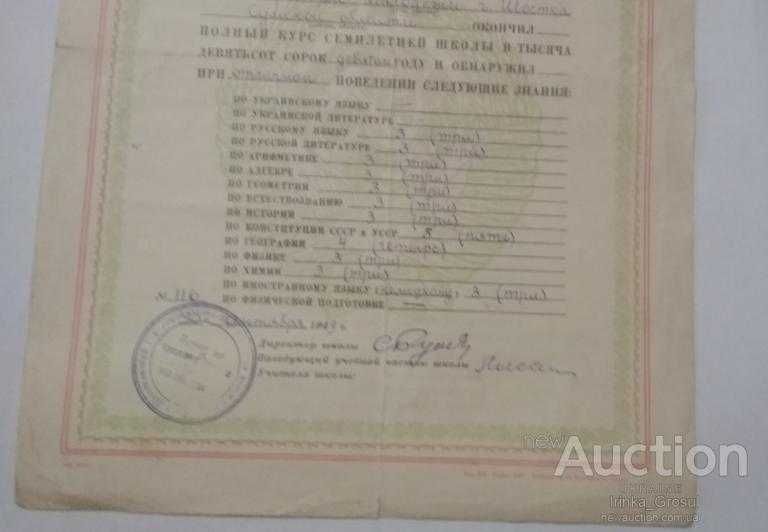 г. Шостка
Сумской области ОКОНЧИЛ
ПОЛНЫЙ КУРС СЕМИЛЕТНЕЙ ШКОЛЫ В ТЫСЯЧА
ДЕВЯТЬСОТ СОРОК девятом ГОДУ И ОБНАРУЖИЛ
ПРИ отличном ПОВЕДЕНИИ СЛЕДУЮЩИЕ ЗНАНИЯ:
ПО УКРАИНСКОМУ ЯЗЫКУ —
ПО УКРАИНСКОЙ ЛИТЕРАТУРЕ
ПО РУССКОМУ ЯЗЫКУ 3 (три)
ПО РУССКОЙ ЛИТЕРАТУРЕ 3 (три)
ПО АРИФМЕТИКЕ 3 (три)
ПО АЛГЕБРЕ 3 (три)
ПО ГЕОМЕТРИИ 3 (три)
ПО ЕСТЕСТВОЗНАНИЮ 3 (три)
ПО ИСТОРИИ 3 (три)
ПО КОНСТИТУЦИИ СССР и УССР 5 (пять)
ПО ГЕОГРАФИИ 4 (четыре)
ПО ФИЗИКЕ 3 (три)
ПО ХИМИИ 3 (три)
ПО ИНОСТРАННОМУ ЯЗЫКУ (немецкому) 3 (три)
ПО ФИЗИЧЕСКОЙ ПОДГОТОВКЕ —
№ 110
сентября 1949 г.
Директор школы
Заведующий учебной частью школы
Учителя школы:
newAuction
UKRAINE
Irinka_Grosul
newauction.com.ua